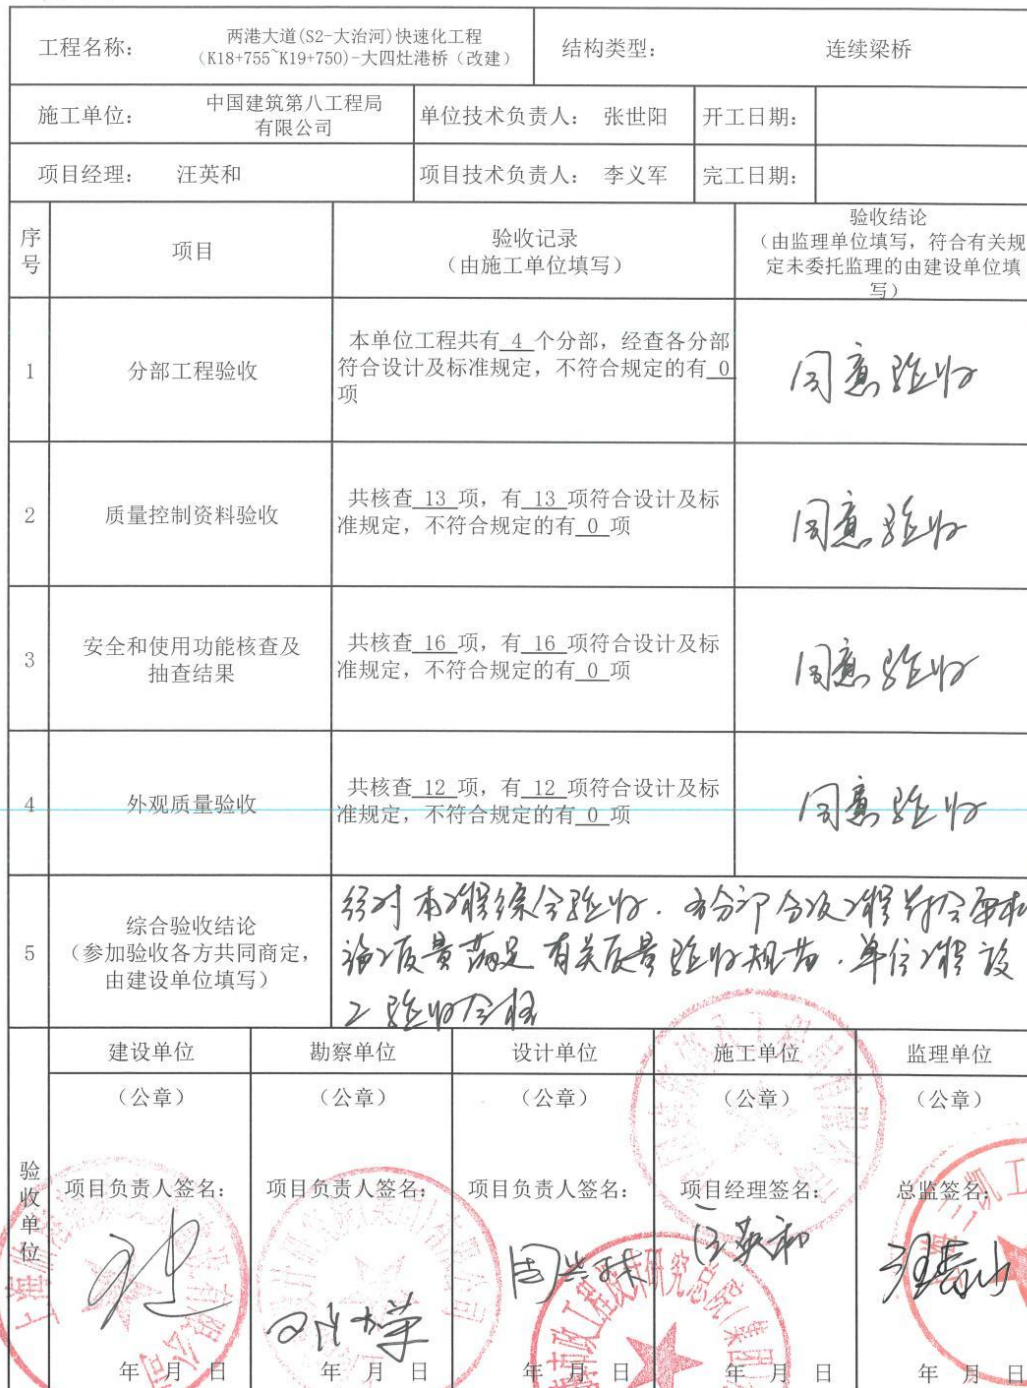 工程名称：
两港大道(S2-大治河)快速化工程
(K18+755~K19+750)-大四灶港桥（改建）
结构类型：
连续梁桥
施工单位：
中国建筑第八工程局
有限公司
单位技术负责人： 张世阳
开工日期：
项目经理： 汪英和
项目技术负责人： 李义军
完工日期：
序号
项目
验收记录
（由施工单位填写）
验收结论
（由监理单位填写，符合有关规
定未委托监理的由建设单位填
写）
1
分部工程验收
本单位工程共有 4 个分部，经查各分部
符合设计及标准规定，不符合规定的有 0
项
同意验收
2
质量控制资料验收
共核查 13 项，有 13 项符合设计及标
准规定，不符合规定的有 0 项
同意验收
3
安全和使用功能核查及
抽查结果
共核查 16 项，有 16 项符合设计及标
准规定，不符合规定的有 0 项
同意验收
4
外观质量验收
共核查 12 项，有 12 项符合设计及标
准规定，不符合规定的有 0 项
同意验收
5
综合验收结论
（参加验收各方共同商定，
由建设单位填写）
经对本工程综合验收，各分部分项工程符合
质量满足有关质量验收规范，单位工程竣
工验收合格
验收单位
建设单位
勘察单位
设计单位
施工单位
监理单位
（公章）
（公章）
（公章）
（公章）
（公章）
项目负责人签名：
项目负责人签名：
项目负责人签名：
项目经理签名：
总监签名：
汪英和
年 月 日
年 月 日
年 月 日
年 月 日
年 月 日